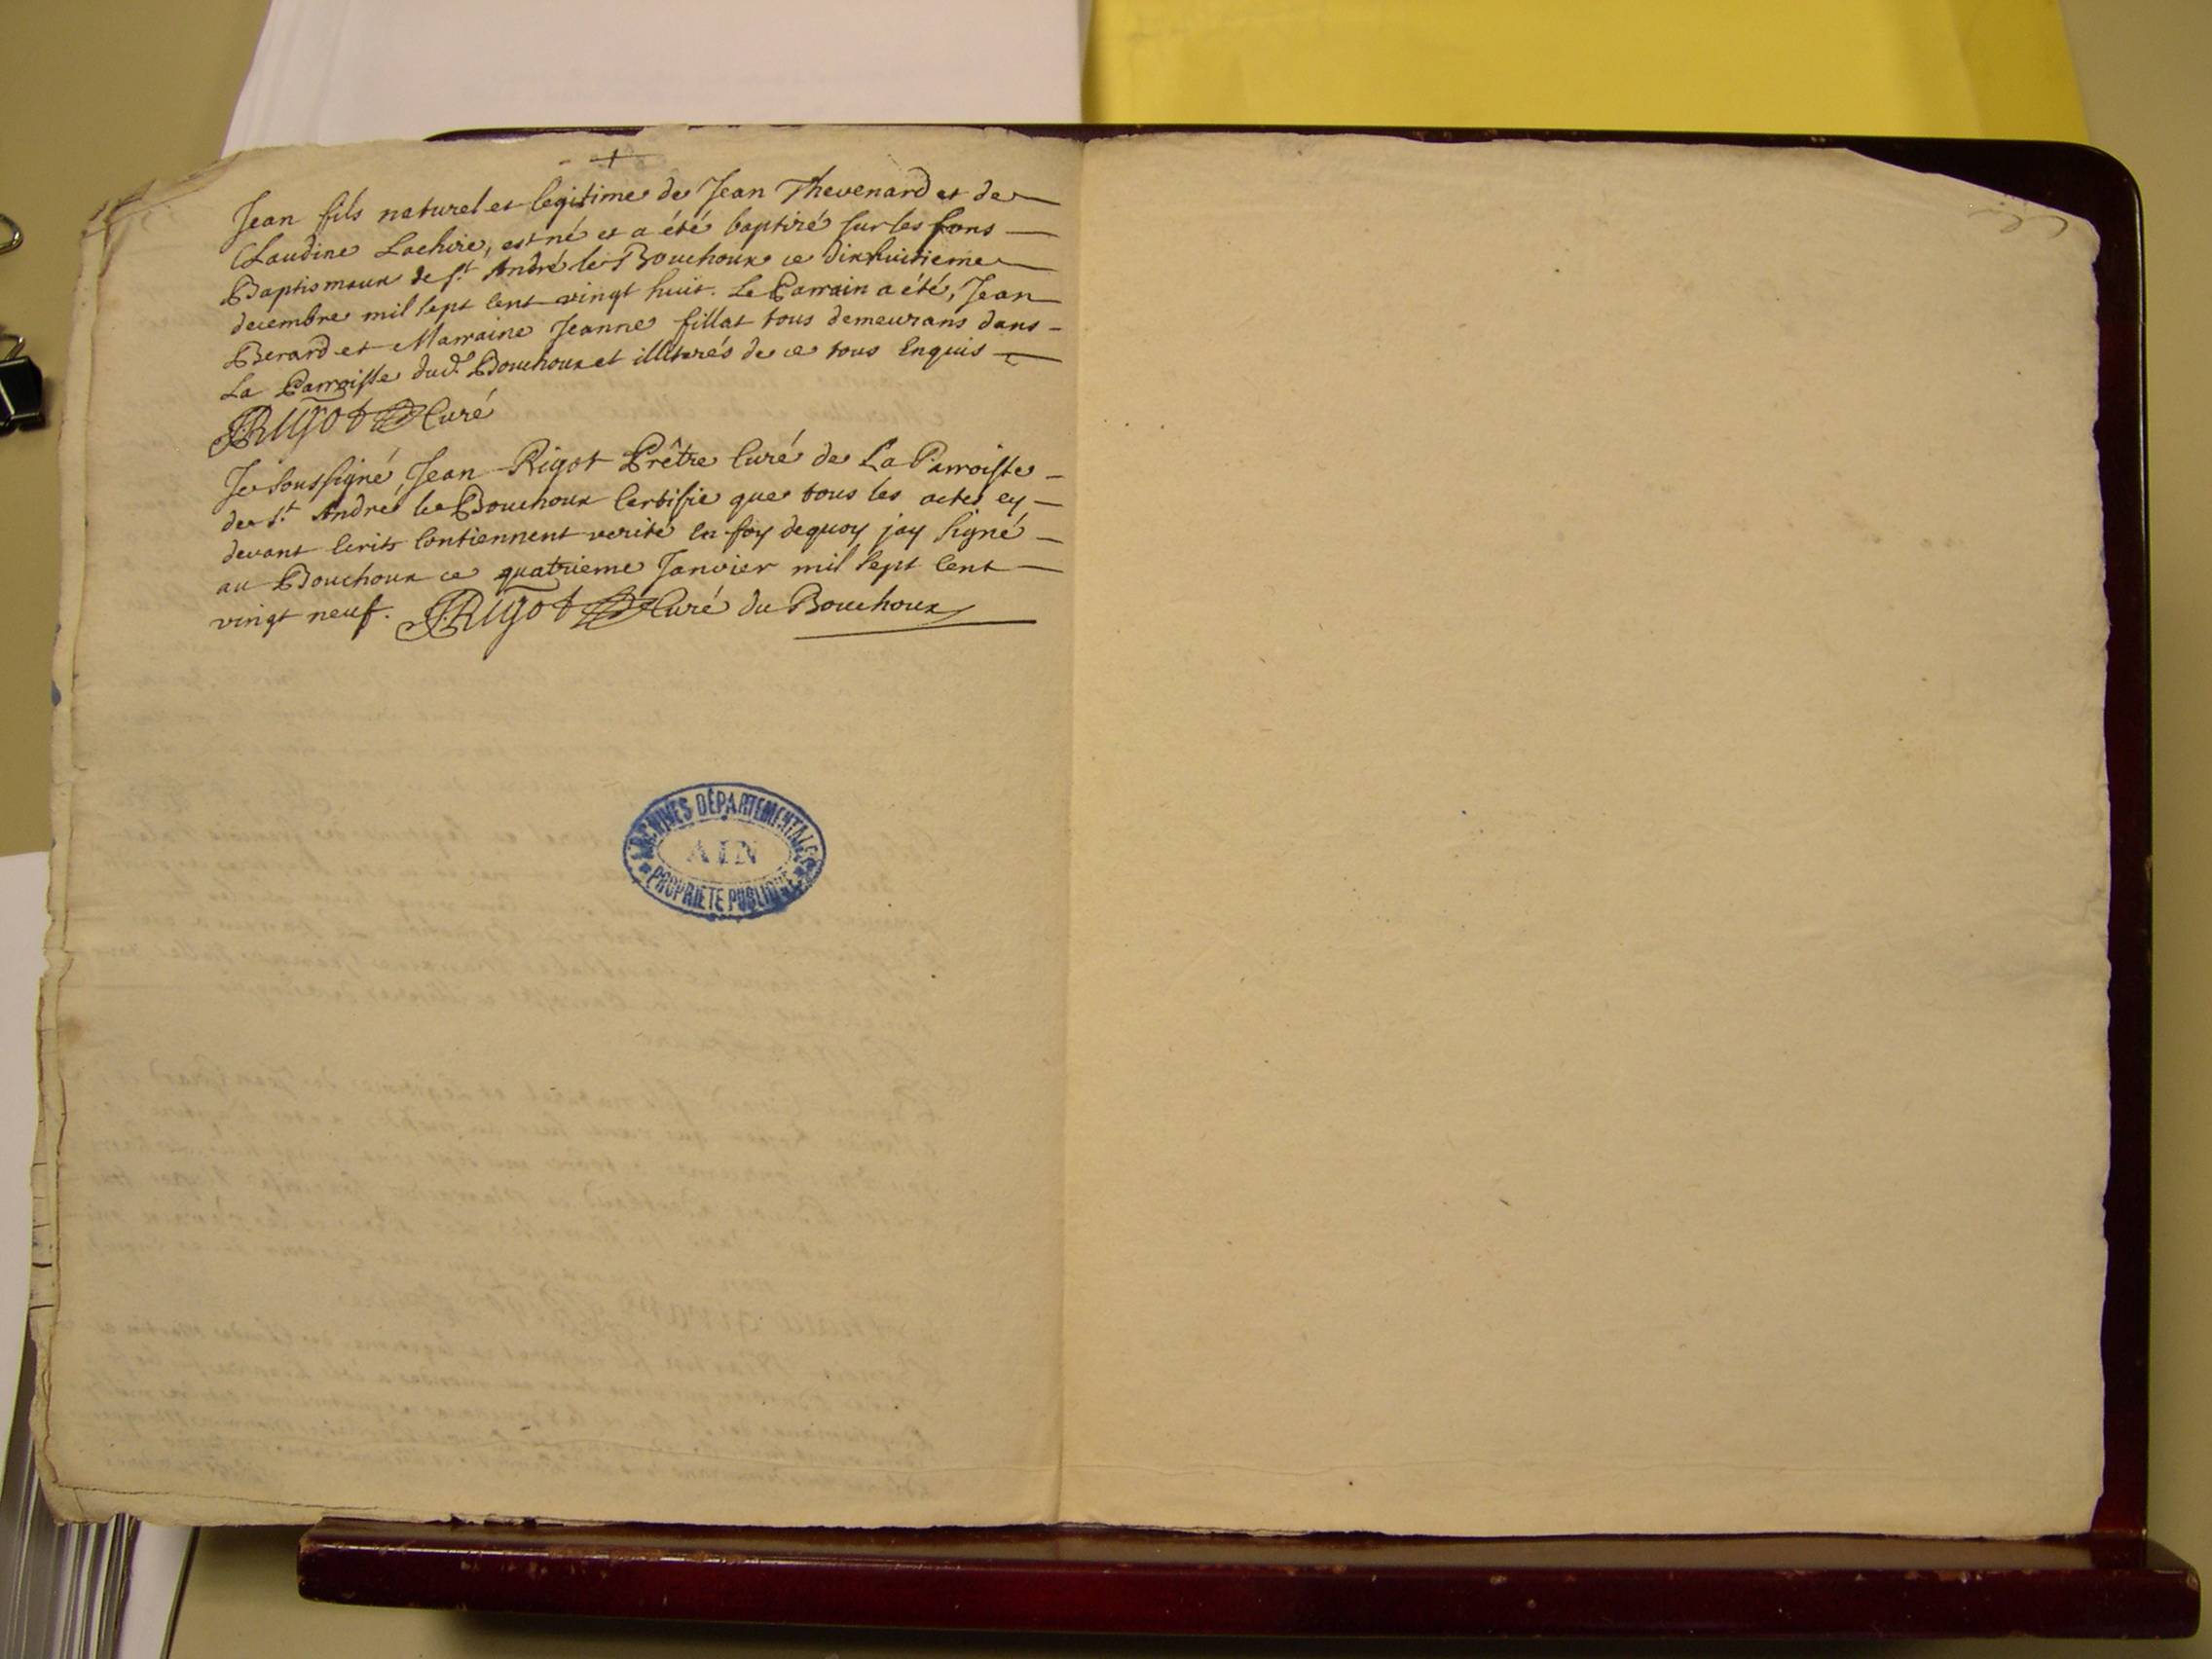 Jean fils naturel et legitime de Jean Thevenard et de
Claudine Lachire, est né et a été baptizé sur les fons
Baptismaux de st. André le Bouchoux ce dixhuitieme
decembre mil sept cent vingt huit. Le Parrain a été, Jean
Berard et Marraine Jeanne fillat tous demeurans dans
La Parroisse dud. Bouchoux et illiterés de ce tous Enquis
J. Rigot Curé
Je soussigné, Jean Rigot Prêtre Curé de La Parroisse
de st. André le Bouchoux Certifie que tous les actes cy
devant Ecrits Contiennent verité en foy dequoy jay signé
au Bouchoux ce quatrieme Janvier mil sept Cent
vingt neuf. J. Rigot Curé du Bouchoux
ARCHIVES DÉPARTEMENTALES
AIN
PROPRIÉTÉ PUBLIQUE